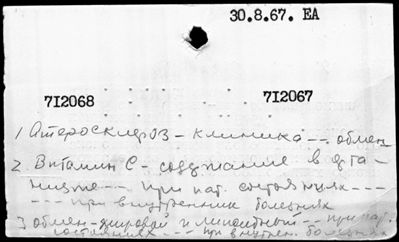 30.8.67. EA
712068 712067
1 Атеросклероз - клиника --- обмен
2. Витамин С - содержание в орга-
низме --- при пат. состояниях ---
--- при внутренних болезнях
3 обмен - жировой и липоидный -- при пат.
состояниях --- при внутрен. болезнях